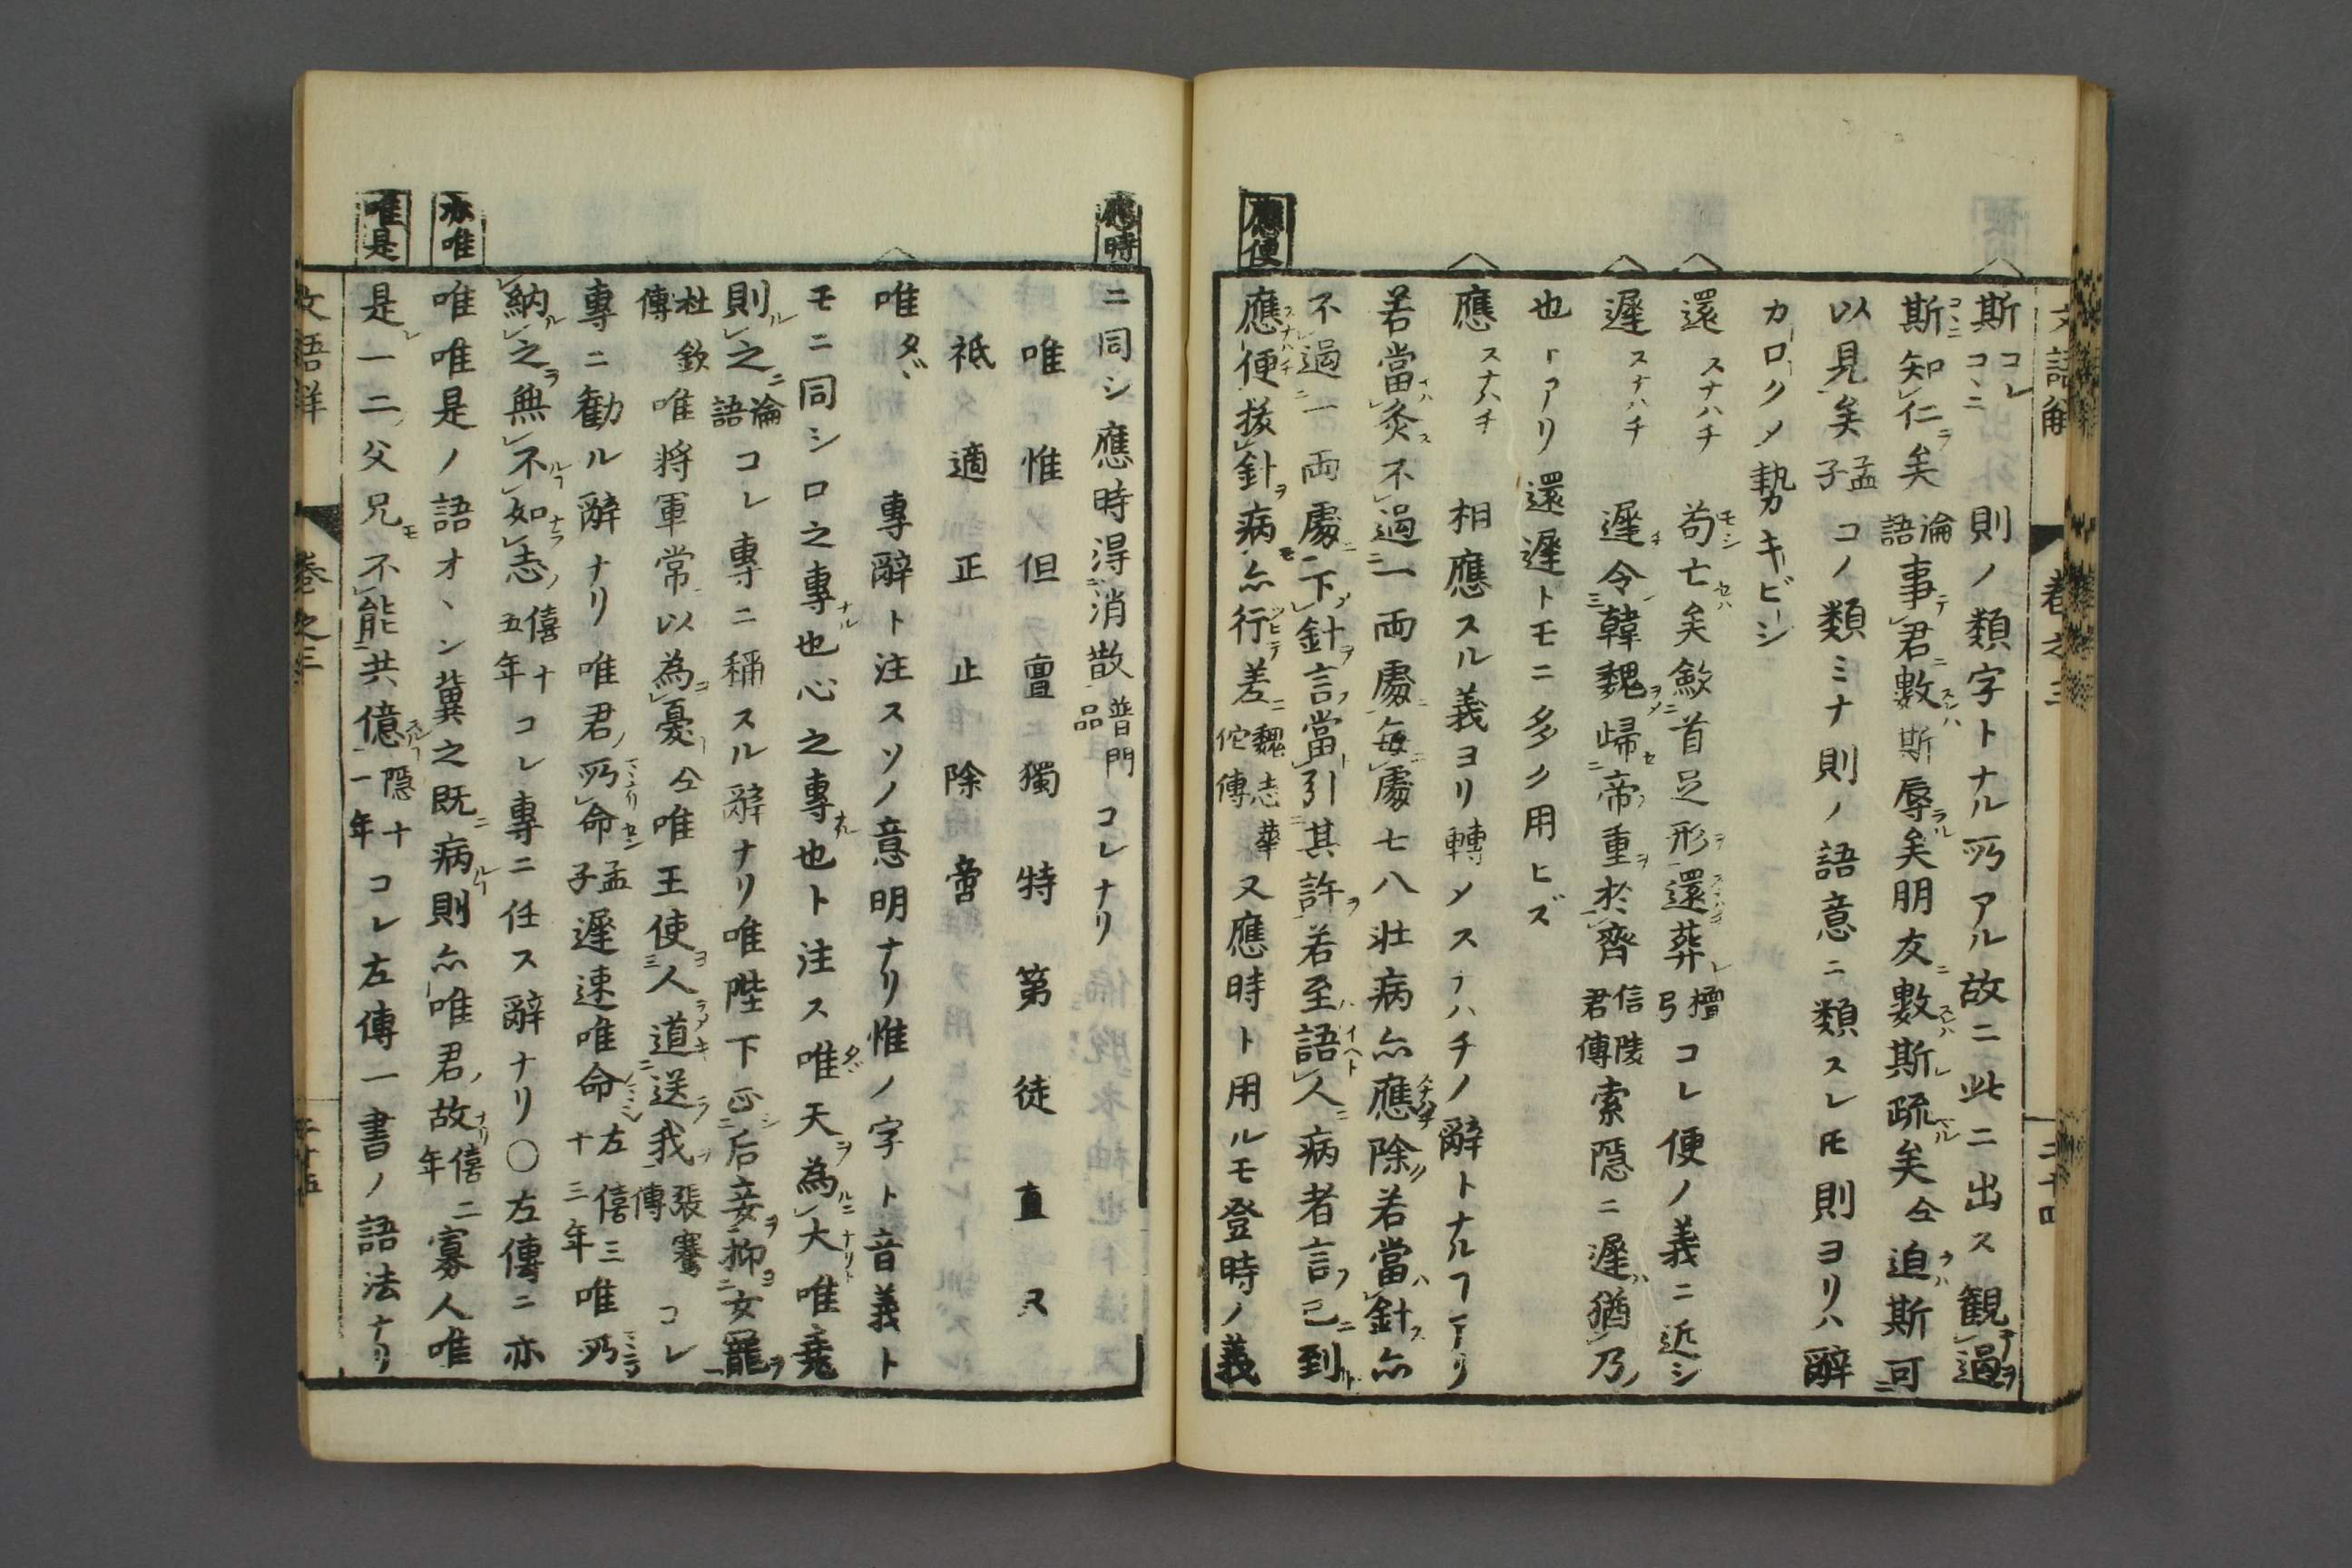 文語解 卷之三 三十四
斯 コレ コヽニ 則ノ類字トナル所アル故ニ此ニ出ス觀過
斯知仁矣 論語 事君數斯辱矣朋友數斯疏矣 仝 迫斯可
以見矣 孟子 コノ類ミナ則ノ語意ニ類スレ𪜈則ヨリハ辭
カロクメ勢カキビーシ
還 スナハチ 苟亡矣歛首足形還葬 檀弓 コレ便ノ義ニ近シ
遲 スナハチ 遲令韓魏歸帝重於齊 信陵君傳 索隱ニ遲猶乃
也トアリ還遲トモニ多ク用ヒズ
應 スナハチ 相應スル義ヨリ轉メスナハチノ辭トナルヿアリ
應便
若當灸不過一両處每處七八壯病亦應除若當針亦
不過一両處下針言當引其許若至語人病者言已到
應便拔針病亦行差 魏志華佗傳 又應時ト用ルモ登時ノ義
應時
ニ同シ應時得消散 普門品 コレナリ
唯 惟 但 亶 獨 特 第 徒 直 又
祗 適 正 止 除 啻
唯 タヾ 專辭ト注スソノ意明ナリ惟ノ字ト音義ト
モニ同シ口之專也心之專也ト注ス唯天為大唯堯
則之 論語 コレ專ニ稱スル辭ナリ唯陛下正后妾抑女寵
杜欽傳 唯將軍常以為憂 仝 唯王使人道送我 張騫傳 コレ
專ニ勸ル辭ナリ唯君所命 孟子 遲速唯命 左僖三十三年 唯所
納之無不如志 僖十五年 コレ專ニ任ス辭ナリ〇左傳ニ亦
亦唯
唯唯是ノ語オヽシ冀之既病則亦唯君故 僖二年 寡人唯
唯是
是一二父兄不能共億 隱十一年 コレ左傳一書ノ語法ナリ
文語解 卷之三 三十五